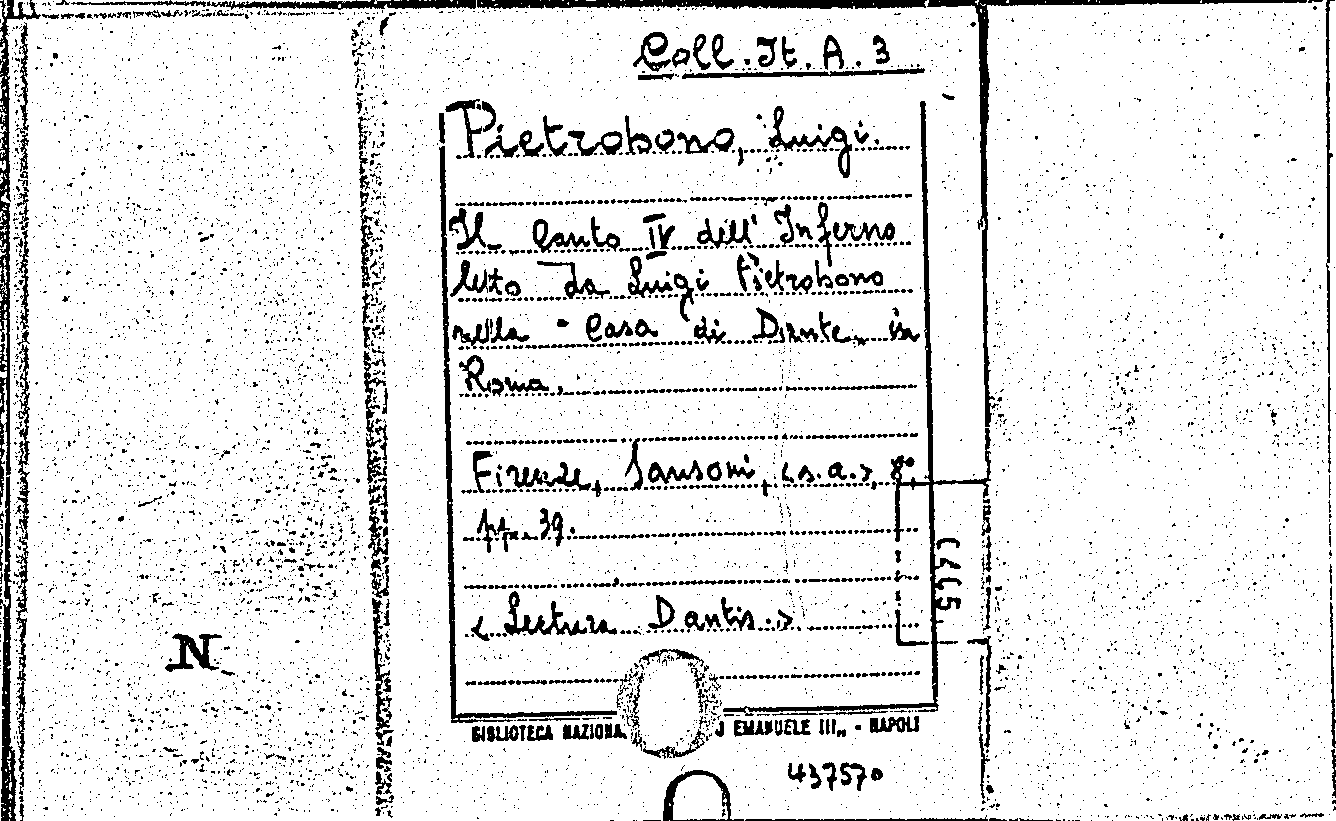 Coll. It. A. 3
Pietrobono, Luigi.
Il Canto IV dell' Inferno
letto da Luigi Pietrobono
nella "Casa di Dante„ in
Roma.
Firenze, Sansoni, <s.a.>, 8°,
pp. 39.
<Lectura Dantis.>
N
BIBLIOTECA NAZIONA EMANUELE III„ - NAPOLI
437570